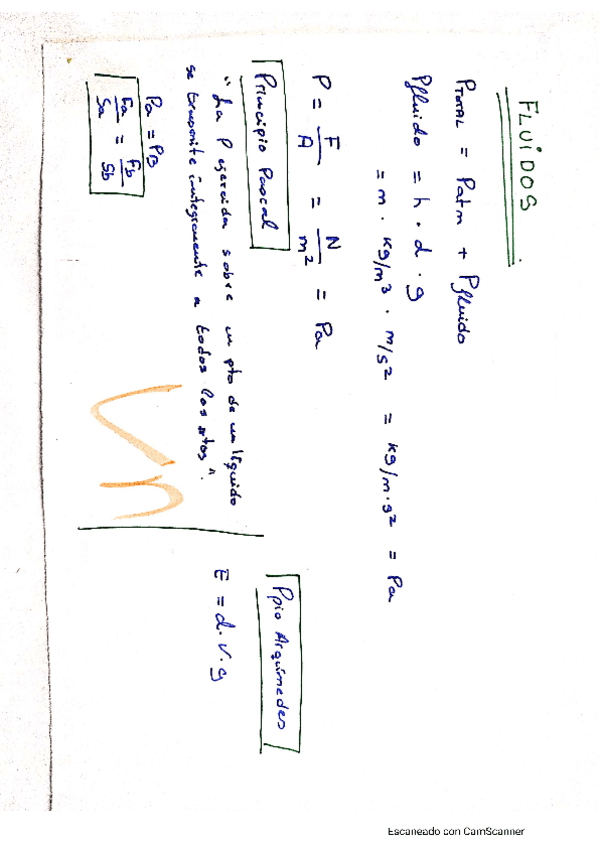 FLUIDOS
PTOTAL = Patm + Pfluido
Pfluido = h · d · g
= m · kg/m³ · m/s² = kg/m·s² = Pa
P = F/A = N/m² = Pa
Principio Pascal
"La P ejercida sobre un pto de un líquido
se transmite íntegramente a todos los ptos".
Pa = PB
Fa/Sa = Fb/Sb
Ppio Arquímedes
E = d·V·g
Escaneado con CamScanner